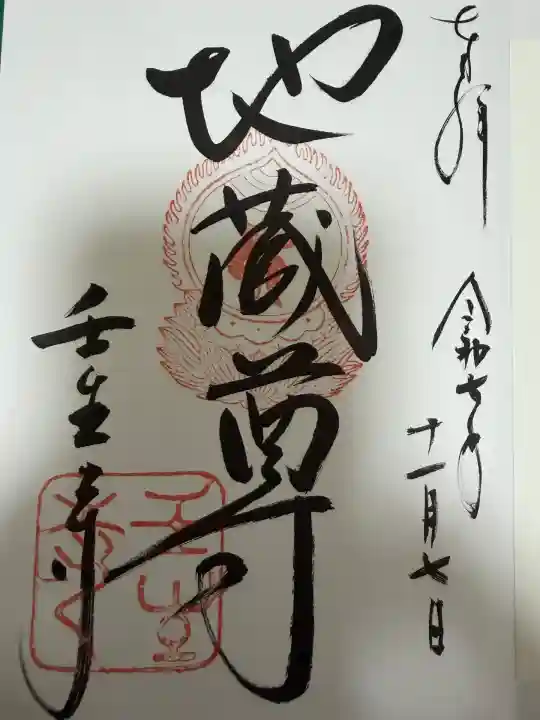 奉拝
令和七年
十一月七日
地蔵尊
壬生寺